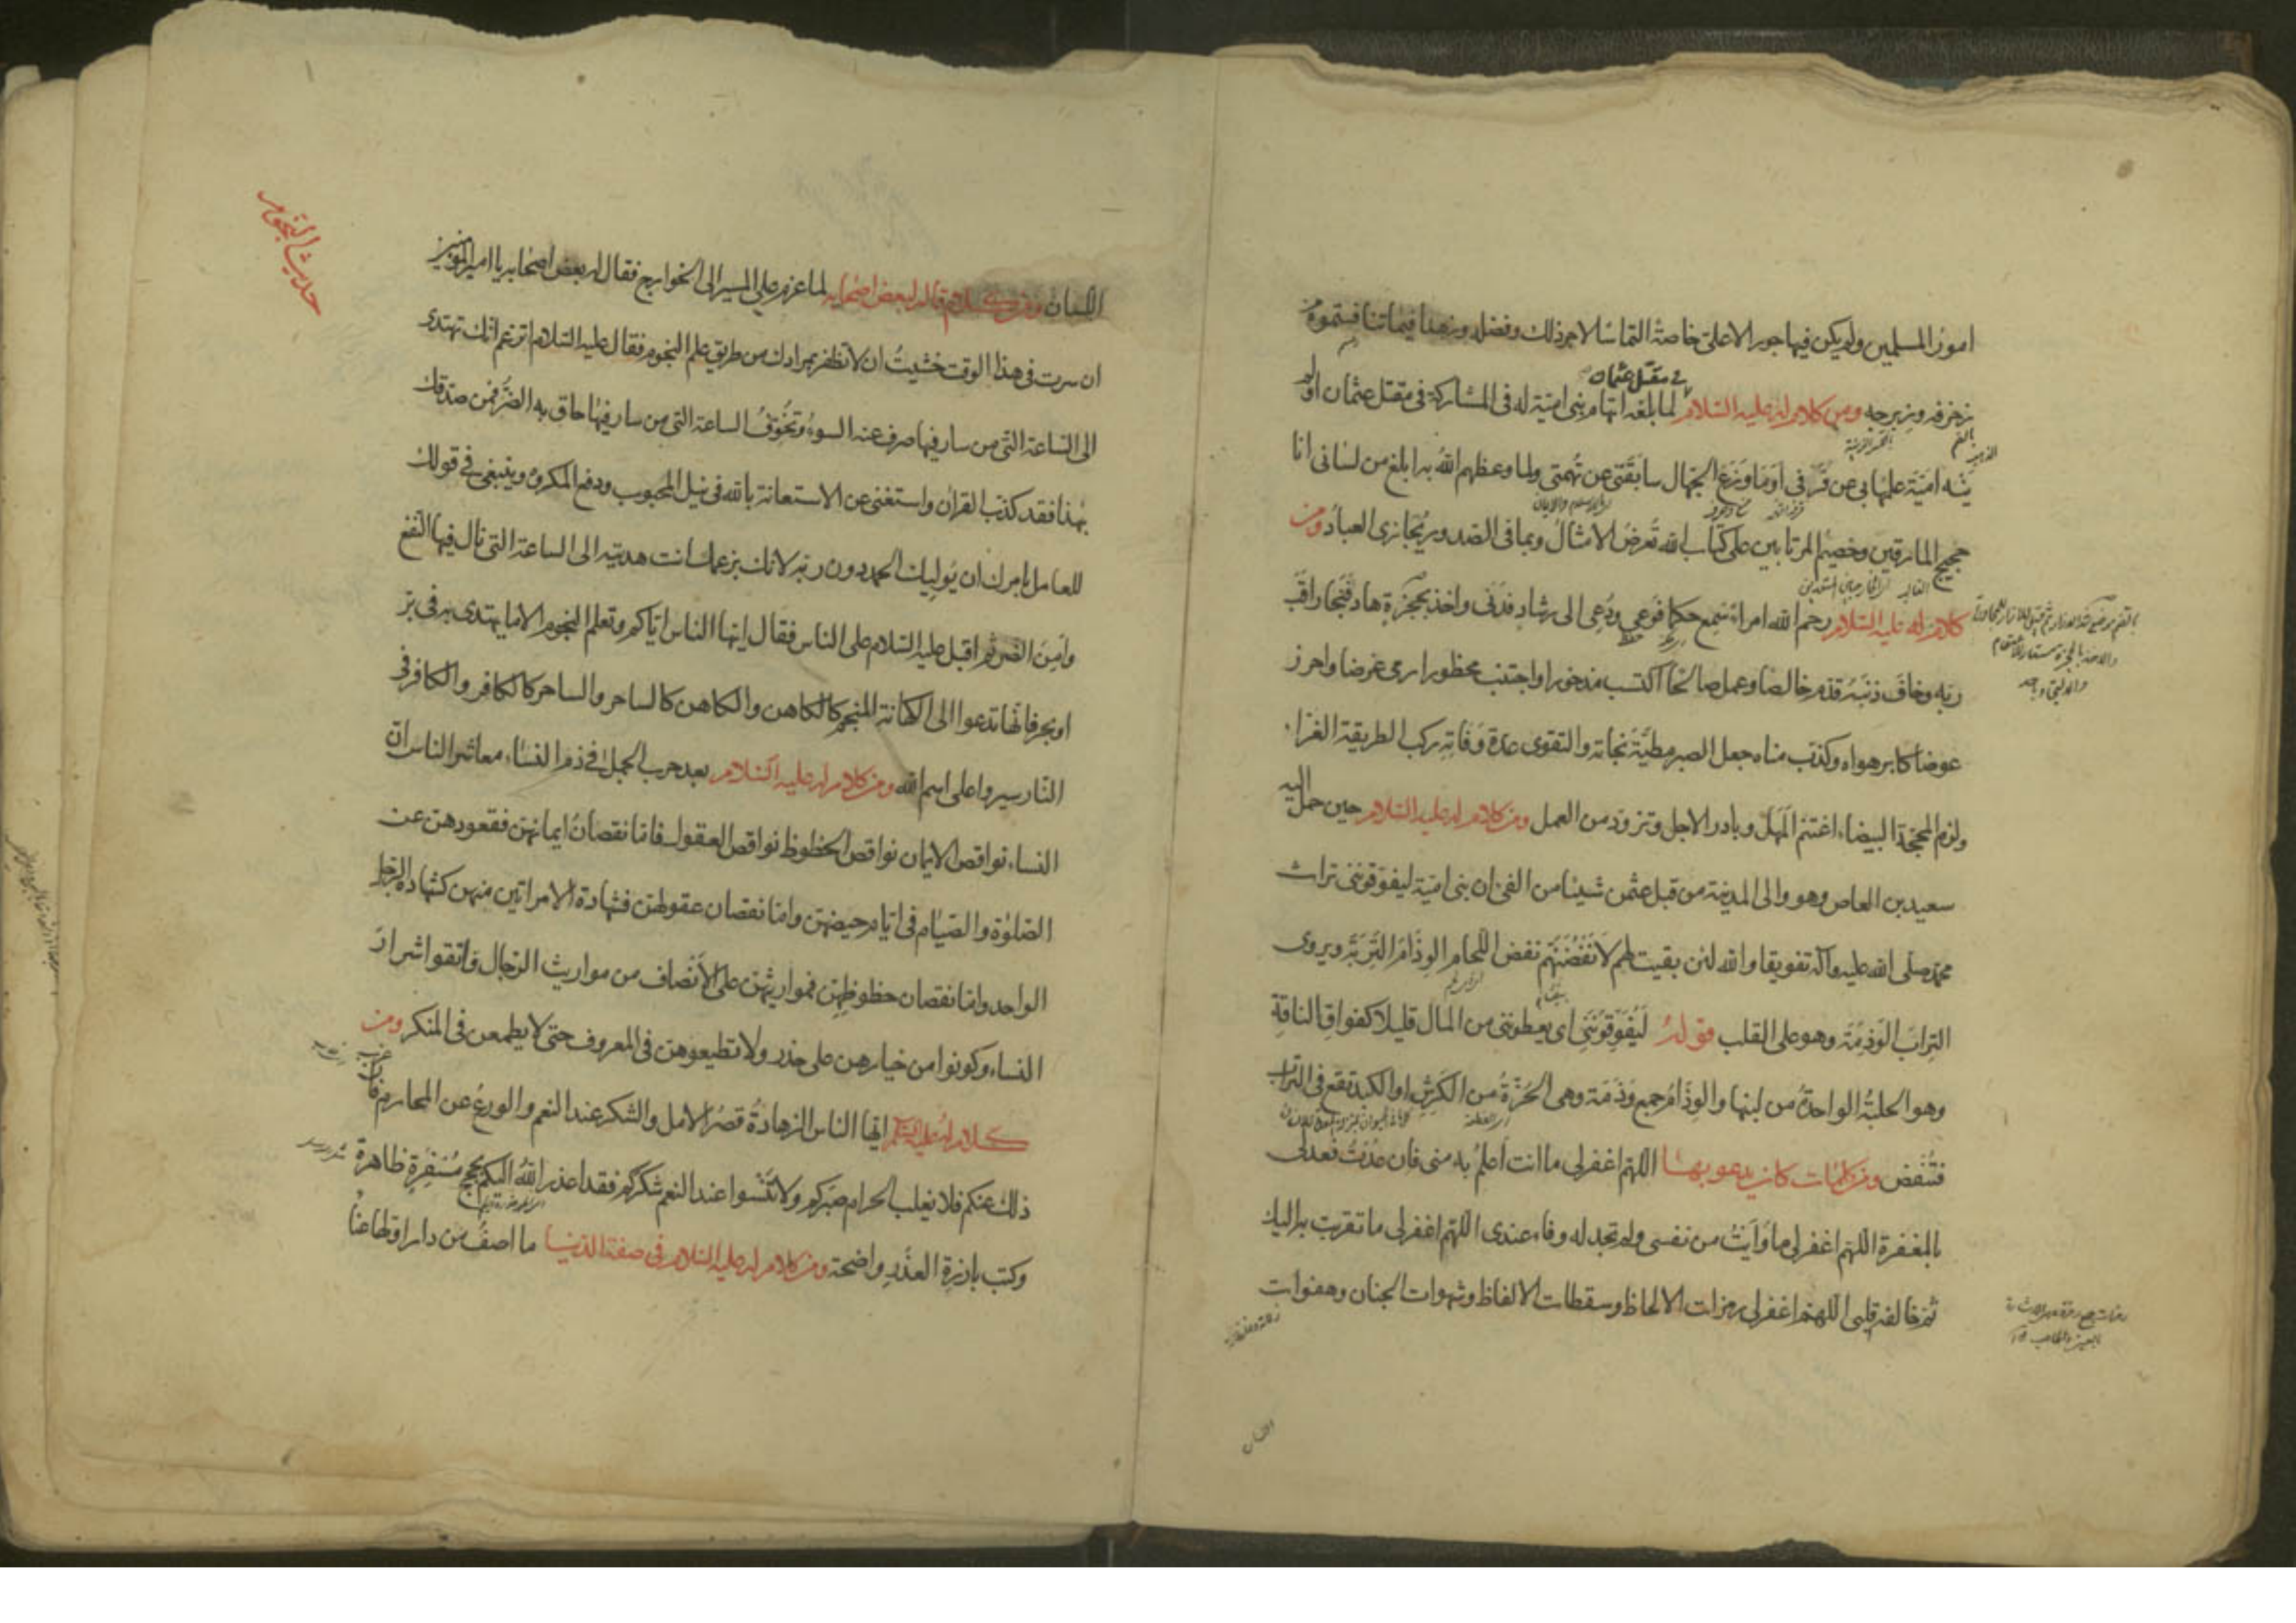 امور المسلمين ولم يكن فيها جور الا على خاصة التماسا لاجر ذلك وفضله وزهدا فيما تنافستموه من
في مقتل عثمان
زخرفه وزبرجه ومن كلام له عليه السلام لما بلغه اتهام بني امية له في المشاركة في مقتل عثمان اولم
ينه امية علمها بي عن قرفي اوما وزع الجهال سابقتي عن تهمتي ولما وعظهم الله به ابلغ من لساني انا
حجيج المارقين وخصيم المرتابين على كتاب الله تعرض الامثال وبما في الصدور يجازى العباد ومن
كلام له عليه السلام رحم الله امراء سمع حكما فوعى ودعي الى رشاد فدنى واخذ بحجزة هاد فنجا راقب
ربه وخاف ذنبه قدم خالصا وعمل صالحا اكتسب مذخورا واجتنب محظورا رمى غرضا واحرز
عوضا كابر هواه وكذب مناه جعل الصبر مطية نجاته والتقوى عدة وفاته ركب الطريقة الغراء
ولزم المحجة البيضاء اغتنم المهل وبادر الاجل وتزود من العمل ومن كلام له عليه السلام حين حمل اليه
سعيد بن العاص وهو والى المدينة من قبل عثمن شيئا من الفئ ان بني امية ليفوقونني تراث
محمد صلى الله عليه وآله تفويقا والله لئن بقيت لهم لانفضنهم نفض اللحام الوذام التربة ويروى
التراب الوذمة وهو على القلب قوله ليفوقونني اى يعطونني من المال قليلا كفواق الناقة
وهو الحلبة الواحدة من لبنها والوذام جمع وذمة وهى الحزة من الكرش او الكبد تقع في التراب
فتنفض ومن كلمات كان يدعو بها اللهم اغفرلى ما انت اعلم به منى فان عدت فعد لى
بالمغفرة اللهم اغفرلى ما وايت من نفسى ولم تجد له وفاء عندى اللهم اغفرلى ما تقربت به اليك
ثم خالفه قلبى اللهم اغفرلى رمزات الالحاظ وسقطات الالفاظ وشهوات الجنان وهفوات
اللسان
حديث النجوم
اللسان ومن كلام قاله لبعض اصحابه لما عزم على المسير الى الخوارج فقال له بعض اصحابه يا امير المؤمنين
ان سرت في هذا الوقت خشيت ان لا تظفر بمرادك من طريق علم النجوم فقال عليه السلام اتزعم انك تهتدى
الى الساعة التى من سار فيها صرف عنه السوء وتخوف الساعة التى من سار فيها حاق به الضر فمن صدقك
بهذا فقد كذب القران واستغنى عن الاستعانة بالله في نيل المحبوب ودفع المكروه وينبغى في قولك
للعامل بامرك ان يوليك الحمد دون ربه لانك بزعمك انت هديته الى الساعة التى نال فيها النفع
وامن الضر ثم اقبل عليه السلام على الناس فقال ايها الناس اياكم وتعلم النجوم الا ما يهتدى به في بر
او بحر فانها تدعوا الى الكهانة المنجم كالكاهن والكاهن كالساحر والساحر كالكافر والكافر في
النار سيروا على اسم الله ومن كلام له عليه السلام بعد حرب الجمل في ذم النساء معاشر الناس ان
النساء نواقص الايمان نواقص الحظوظ نواقص العقول فاما نقصان ايمانهن فقعودهن عن
الصلوة والصيام في ايام حيضهن واما نقصان عقولهن فشهادة الامراتين منهن كشهادة الرجل
الواحد واما نقصان حظوظهن فمواريثهن على الانصاف من مواريث الرجال فاتقوا شرار
النساء وكونوا من خيارهن على حذر ولا تطيعوهن في المعروف حتى لا يطمعن في المنكر ومن
كلام له عليه السلام ايها الناس الزهادة قصر الامل والشكر عند النعم والورع عن المحارم فان عزب
ذلك عنكم فلا يغلب الحرام صبركم ولا تنسوا عند النعم شكركم فقد اعذر الله اليكم بحجج مسفرة ظاهرة
وكتب بارزة العذر واضحة ومن كلام له عليه السلام في صفة الدنيا ما اصف من دار اولها عناء